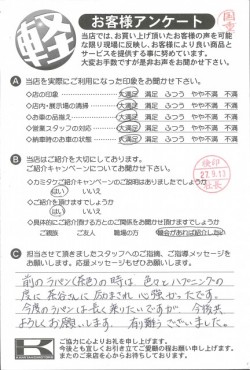 軽
お客様アンケート
当店では、お買い上げ頂いたお客様の声を可能
な限り現場に反映し、お客様により良い商品と
サービスを提供する事に努めています。
大変お手数ですが是非お声をお聞かせ下さい。
A 当店を実際にご利用になった印象をお聞かせ下さい。
◇店の印象 大満足 満足 ふつう やや不満 不満
◇店内・展示場の清掃 大満足 満足 ふつう やや不満 不満
◇お車の品揃え 大満足 満足 ふつう やや不満 不満
◇営業スタッフの対応 大満足 満足 ふつう やや不満 不満
◇納車時のお車の状態 大満足 満足 ふつう やや不満 不満
B 当店はご紹介を大切にしております。
ご紹介キャンペーンについてお聞かせ下さい。
◇カミタケご紹介キャンペーンのご説明はありましたでしょうか
はい いいえ
◇ご紹介頂けますでしょうか
はい いいえ
機会があれば紹介したい
◇具体的にご紹介頂ける方とのご関係をお聞かせ頂けますでしょうか
ご親族 ご友人 職場の方
27.9.13
C 担当させて頂きましたスタッフへのご指摘、ご指導メッセージを
お願いします。応援メッセージもぜひお願いします。
前のラパン(茶色)の時は 色々とハプニングの
度に 茶谷さんに 励まされ 心強かったです。
今度のラパンは長く乗りたいですが 今後共
よろしくお願いします。 有り難うございました。
ご協力に心よりお礼を申し上げます。
今後とも宜しくお引き立てご愛顧の程お願い申し上げます。
またのご来店を心からお待ちしております。